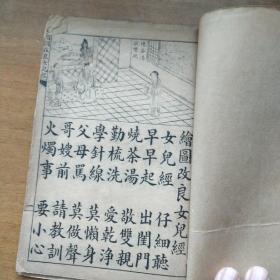 繪圖改良女兒經
女兒經 仔細聽
早早起 出閨門
燒茶湯 敬雙親
勤梳洗 愛乾淨
學針線 莫懶身
父母罵 莫做聲
哥嫂前 請教訓
火燭事 要小心